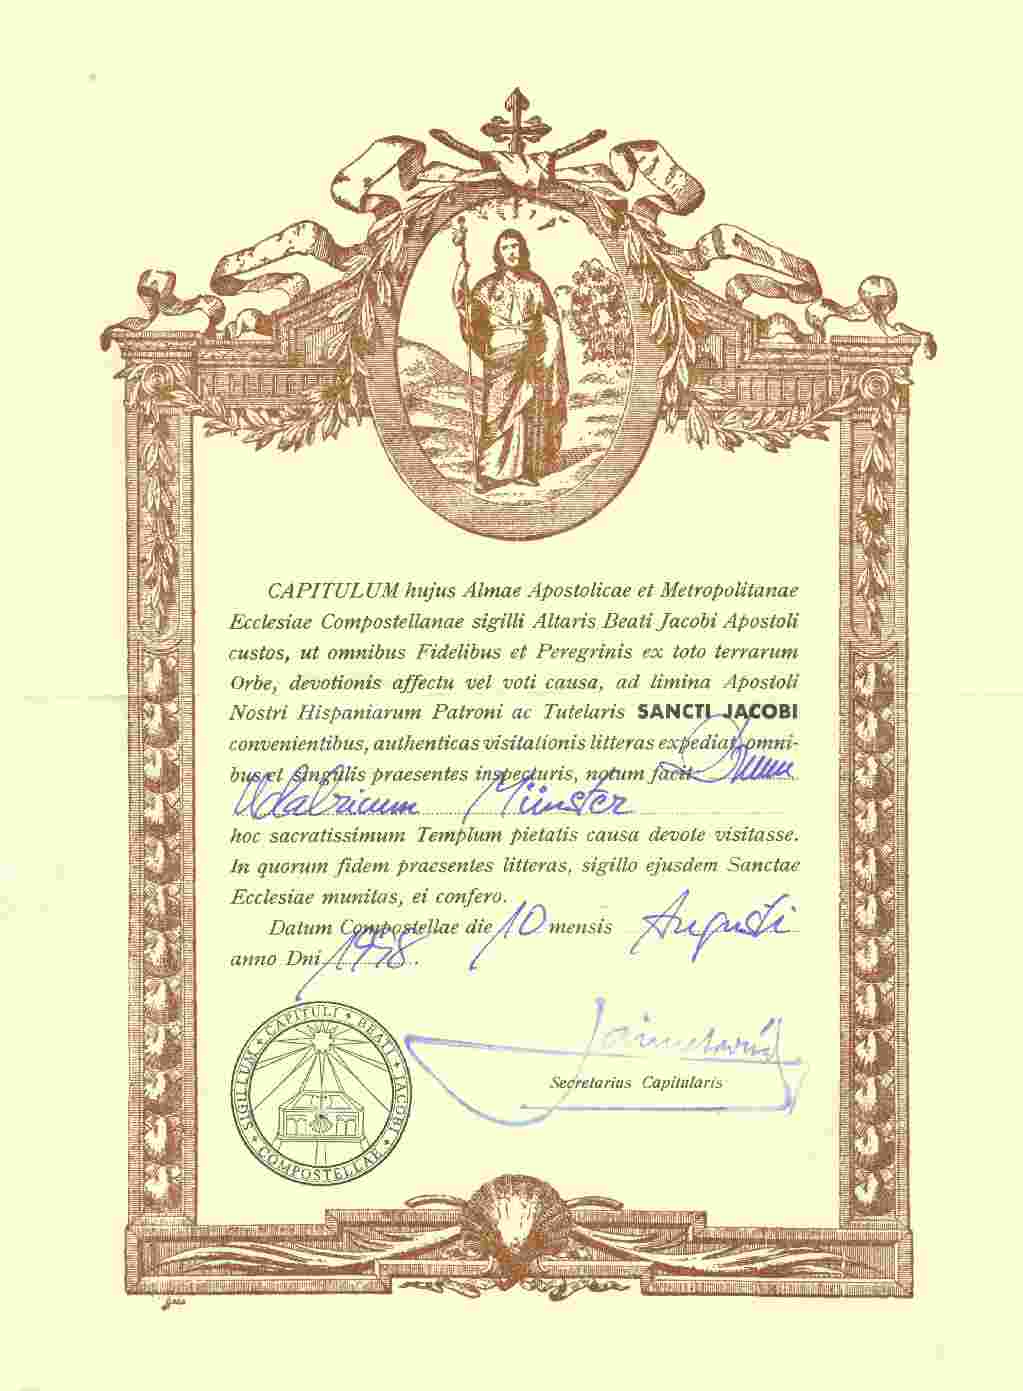 CAPITULUM hujus Almae Apostolicae et Metropolitanae
Ecclesiae Compostellanae sigilli Altaris Beati Jacobi Apostoli
custos, ut omnibus Fidelibus et Peregrinis ex toto terrarum
Orbe, devotionis affectu vel voti causa, ad limina Apostoli
Nostri Hispaniarum Patroni ac Tutelaris SANCTI JACOBI
convenientibus, authenticas visitationis litteras expediat, omni-
bus et singulis praesentes inspecturis, notum facit: Dnum
Udalricum Münster
hoc sacratissimum Templum pietatis causa devote visitasse.
In quorum fidem praesentes litteras, sigillo ejusdem Sanctae
Ecclesiae munitas, ei confero.
Datum Compostellae die 10 mensis Augusti
anno Dni 1998.
SIGILLUM CAPITULI BEATI JACOBI COMPOSTELLAE
Secretarius Capitularis